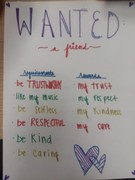 WANTED
a friend
requirements
be TRUSTWORTHY
like my music
be selfless
be RESPECTFUL
be Kind
be caring
rewards
my trust
my respect
my kindness
my care